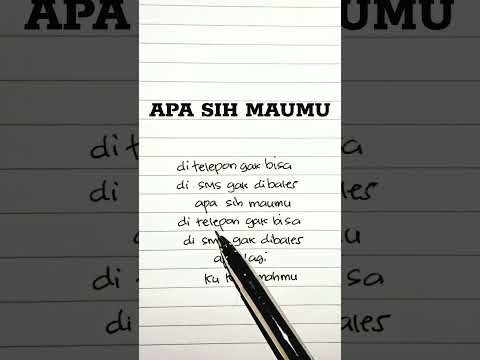 APA SIH MAUMU
APA SIH MAUMU
di telepon gak bisa
di sms gak dibales
apa sih maumu
di telepon gak bisa
di sms gak dibales
lagi
ku mahmu